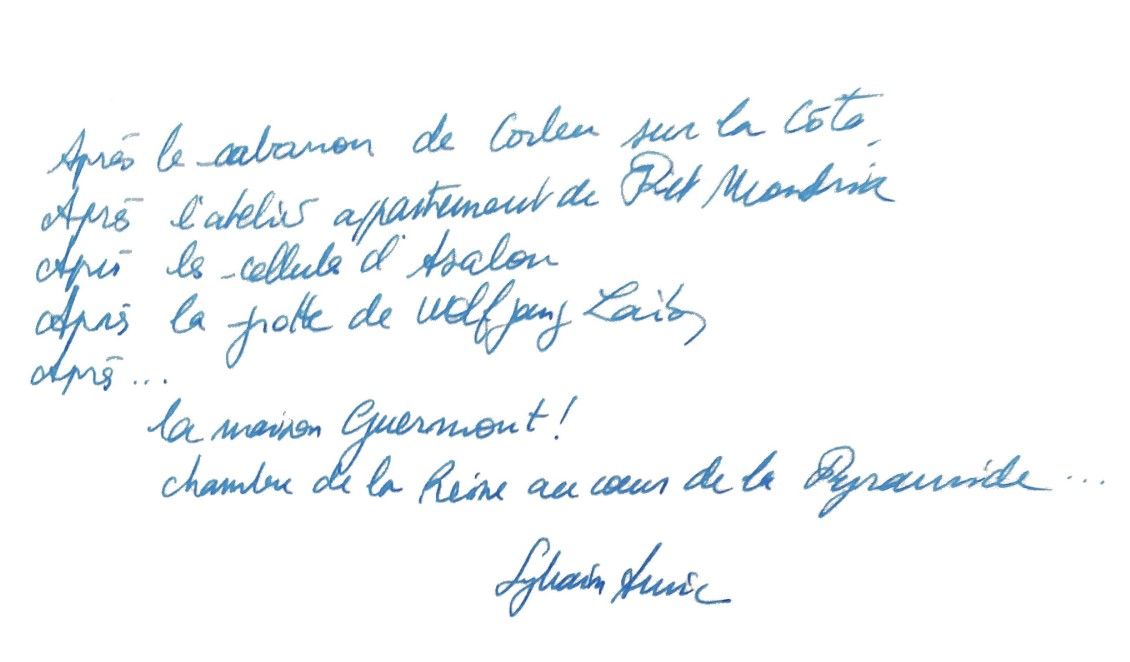 Après le cabanon de Corbu sur la Côte,
Après l'atelier appartement de Piet Mondrian
Après la cellule d'Absalon
Après la grotte de Wolfgang Laib,
Après...
la maison Guermont !
chambre de la Reine au cœur de la Pyramide...
Sylvain Amic